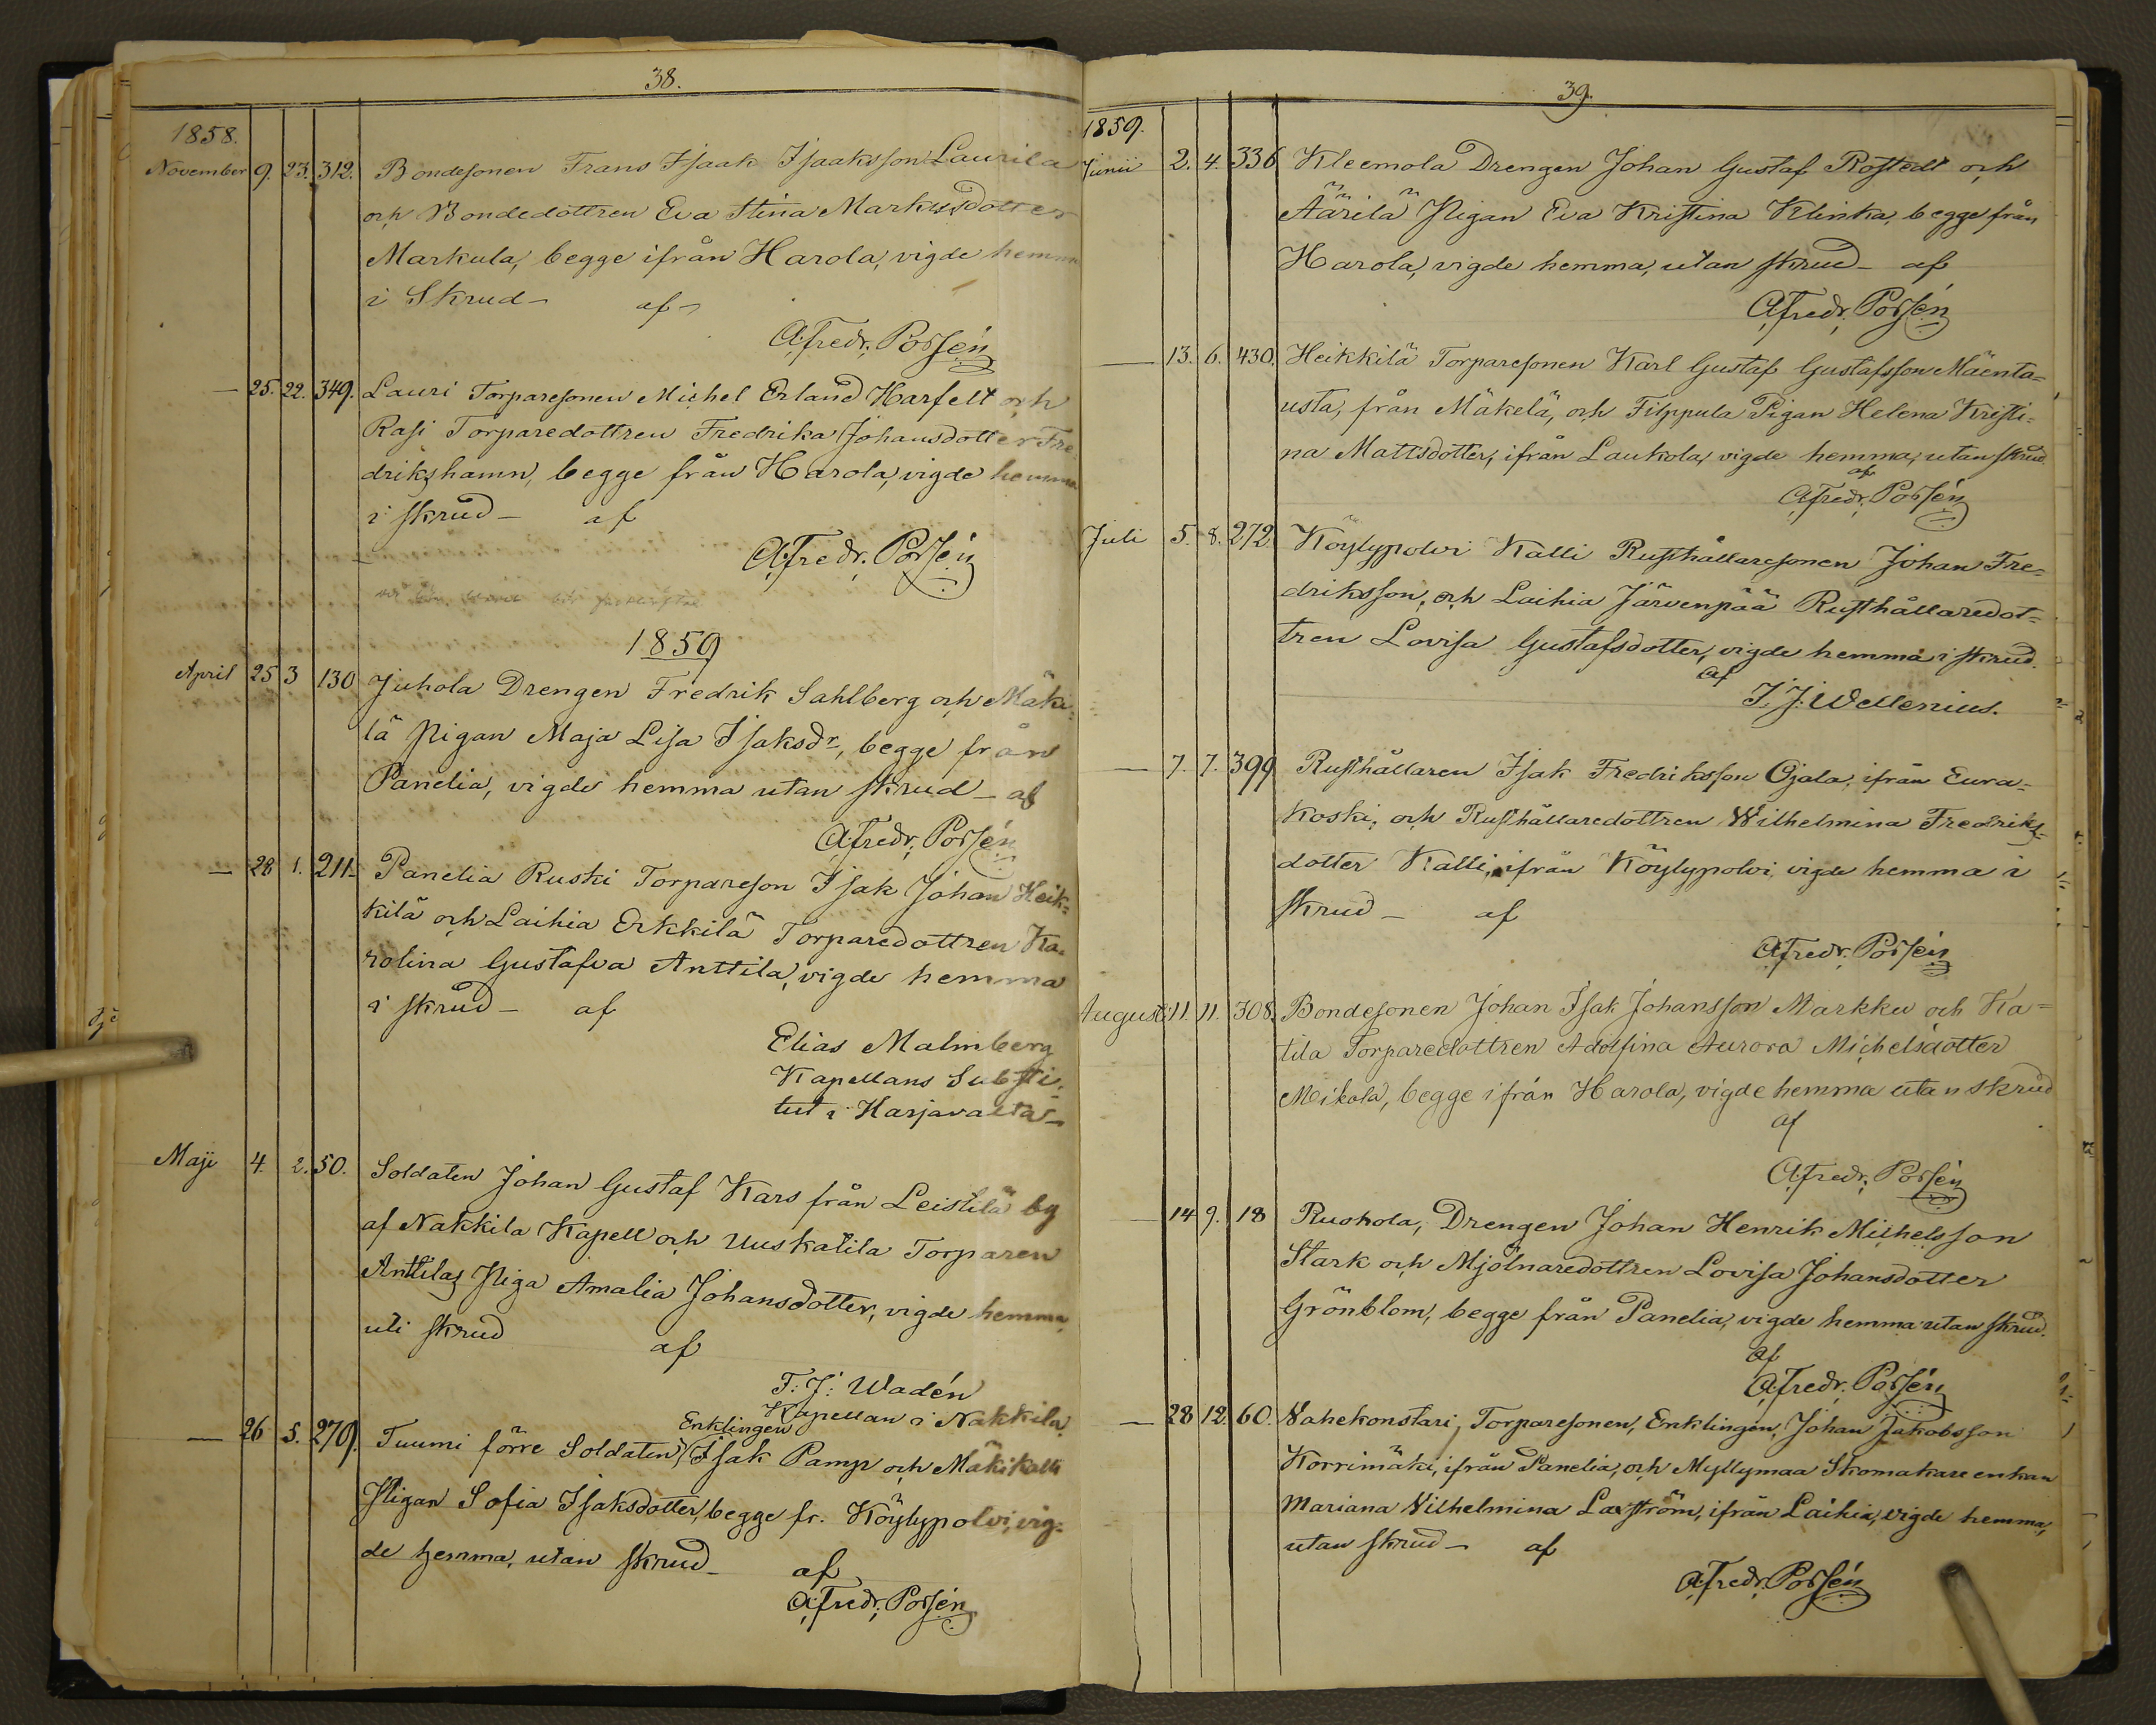 38.
1858.
November 9. 23. 312. Bondesonen Frans Isaak Isaaksson Laurila
och Bondedottren Eva Stina Markusdotter
Markula, begge ifrån Harola, vigde hemma
i Skrud – af –
A: Fredr: Porsén
— 25. 22. 349. Lauri Torparesonen Michel Erland Harfelt och
Rasi Torparedottren Fredrika Johansdotter Fre
drikshamn, begge från Harola, vigde hemma
i skrud – af
A: Fredr: Porsén
1859
April 25 3 130 Juhola Drengen Fredrik Sahlberg och Mäki=
lä Pigan Maja Lisa Isaksdr, begge från
Panelia, vigde hemma utan skrud – af
A: Fredr: Porsén
— 28 1. 211. Panelia Ruski Torpareson Isak Johan Heik=
kilä och Laihia Erkkilä Torparedottren Ka=
rolina Gustafva Anttila, vigde hemma
i skrud – af
Elias Malmberg
Kapellans Substi=
tut i Harjavalta –
Maji 4. 2. 50. Soldaten Johan Gustaf Kars från Leistilä by
af Nakkila Kapell och Uuskatila Torparen
Anttilas Piga Amalia Johansdotter, vigde hemma
uti skrud af
F: J: Wadén
Kapellan i Nakkila.
Enklingen
— 26 5. 279. Tuumi förre Soldaten Isak Pamp och Mäkikalli
Pigan Sofia Isaksdotter, begge fr. Köylypolvi, vig=
de hemma, utan skrud – af
A: Fredr: Porsén
39.
1859.
Junii 2. 4. 336 Kleemola Drengen Johan Gustaf Rostedt och
Äärilä Pigan Eva Kristina Klinka, begge från
Harola, vigde hemma, utan skrud – af
A: Fredr: Porsén
— 13. 6. 430. Heikkilä Torparesonen Karl Gustaf Gustafsson Mäenta=
usta, från Mäkelä, och Filppula Pigan Helena Kristi=
na Mattsdotter, ifrån Laukola, vigde hemma, utan skrud
af
A: Fredr: Porsén
Juli 5. 8. 272. Köylypolvi Kalli Rusthållaresonen Johan Fre=
driksson, och Laihia Järvenpää Rusthållaredot=
tren Lovisa Gustafsdotter, vigde hemma i skrud.
af
J. J: Wellenius.
— 7. 7. 399 Rusthållaren Isak Fredriksson Ojala, ifrån Eura=
koski, och Rusthållaredottren Wilhelmina Fredriks=
dotter Kalli, ifrån Köylypolvi, vigde hemma i
skrud – af
A: Fredr: Porsén
August: 11. 11. 308. Bondesonen Johan Isak Johansson Markku och Ka=
tila Torparedottren Adolfina Aurora Michelsdotter
Mikola, begge ifrån Harola, vigde hemma utan skrud
af
A: Fredr: Porsén
— 14 9. 18 Ruohola, Drengen Johan Henrik Michelsson
Stark och Mjölnaredottren Lovisa Johansdotter
Grönblom, begge från Panelia, vigde hemma utan skrud.
af
A: Fredr: Porsén
— 28 12. 60. Wahekonstari, Torparesonen, Enklingen, Johan Jakobsson
Korrimäki, ifrån Panelia, och Myllymaa Skomakare enkan
Mariana Wilhelmina Laxström, ifrån Laihia, vigde hemma,
utan skrud – af
A: Fredr: Porsén